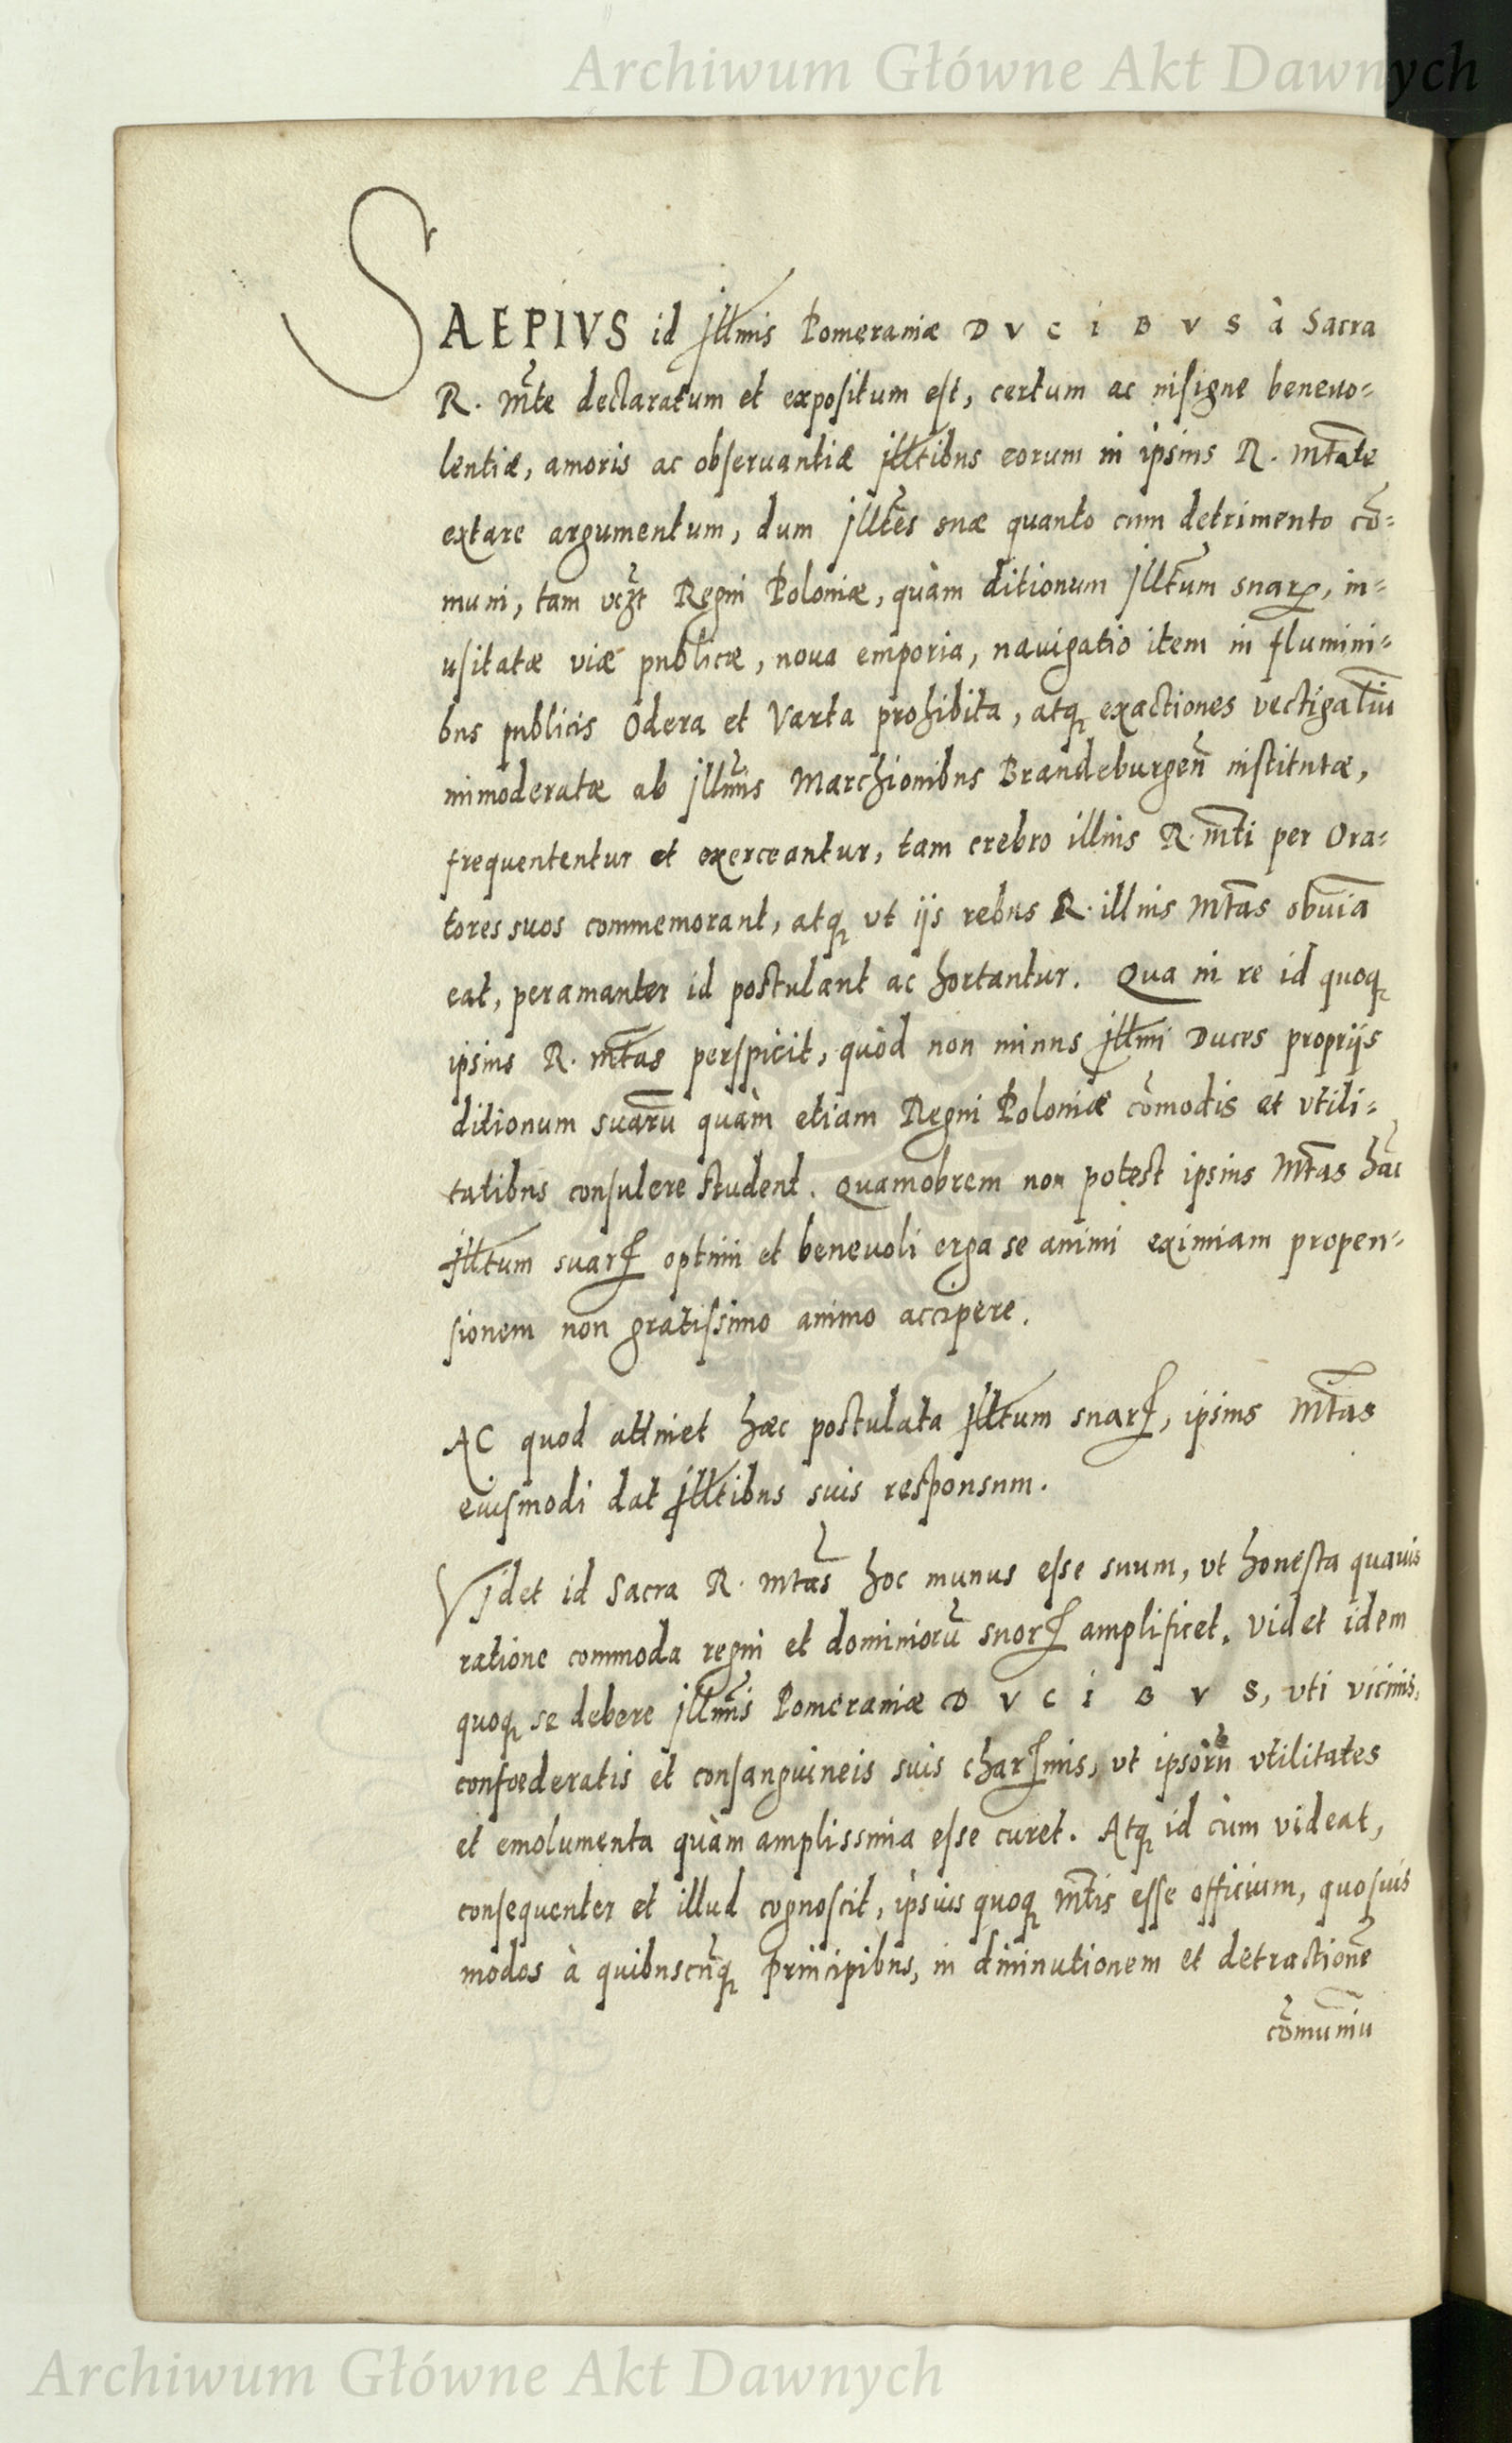 Archiwum Główne Akt Dawnych
SAEPIVS id Jllmis Pomeraniæ DVCIBVS à Sacra
R. Mte declaratum et expositum est, certum ac insigne beneuo-
lentiæ, amoris ac obseruantiæ Jlltibus eorum in ipsius R. Mtate
extare argumentum, dum Jlltes suæ quanto cum detrimento cō-
muni, tam vczt Regni Poloniæ, quàm ditionum Jlltum suarꝝ, in-
usitatæ viæ publicæ, noua emporia, nauigatio item in flumini-
bus publicis Odera et Varta prohibita, atqꝫ exactiones vectigaliū
immoderatæ ab Jllmis Marchionibus Brandeburgen̄ institutæ,
frequententur et exerceantur, tam crebro illius R. Mti per Ora-
tores suos commemorant, atqꝫ vt ijs rebus R. illius Mtas obuiā
eat, peramanter id postulant ac hortantur. Qua in re id quoqꝫ
ipsius R. Mtas perspicit, quòd non minus Jllmi Duces proprijs
ditionum suarū quàm etiam Regni Poloniæ cōmodis et vtili-
tatibus consulere student. Quamobrem non potest ipsius Mtas hāc
Jlltum suarꝝ optimi et beneuoli erga se animi eximiam propen-
sionem non gratissimo animo accipere.
AC quod attinet hæc postulata Jlltum suarꝝ, ipsius Mtas
eiusmodi dat Jlltibus suis responsum.
Videt id Sacra R. Mtas hoc munus esse suum, vt honesta quauis
ratione commoda regni et dominiorū suorꝝ amplificet. Videt idem
quoqꝫ se debere Jllmis Pomeraniæ DVCIBVS, vti vicinis,
confœderatis et consanguineis suis charꝝmis, vt ipsorū vtilitates
et emolumenta quàm amplissima esse curet. Atqꝫ id cùm videat,
consequenter et illud cognoscit, ipsius quoqꝫ Mtis esse officium, quosuis
modos à quibuscūqꝫ principibus, in diminutionem et detractionē
cōmuniū
Archiwum Główne Akt Dawnych